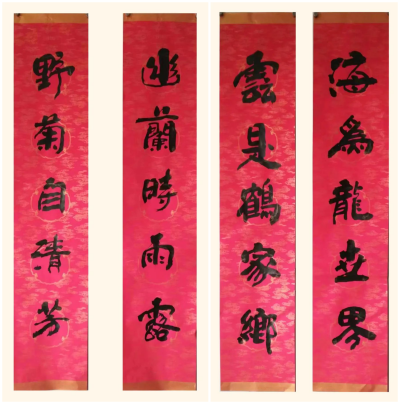 海為龍世界
雲是鶴家鄉
幽蘭時雨露
野菊自清芳